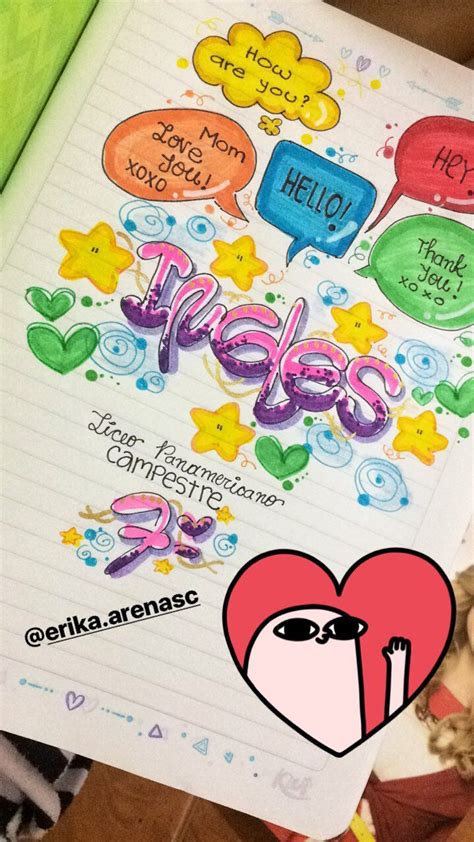 How
are you?
Mom
Love
You!
xoxo
HELLO!
HEY
Thank
you!
xoxo
Ingles
Liceo Panamericano
CAMPESTRE
7°
@erika.arenasc